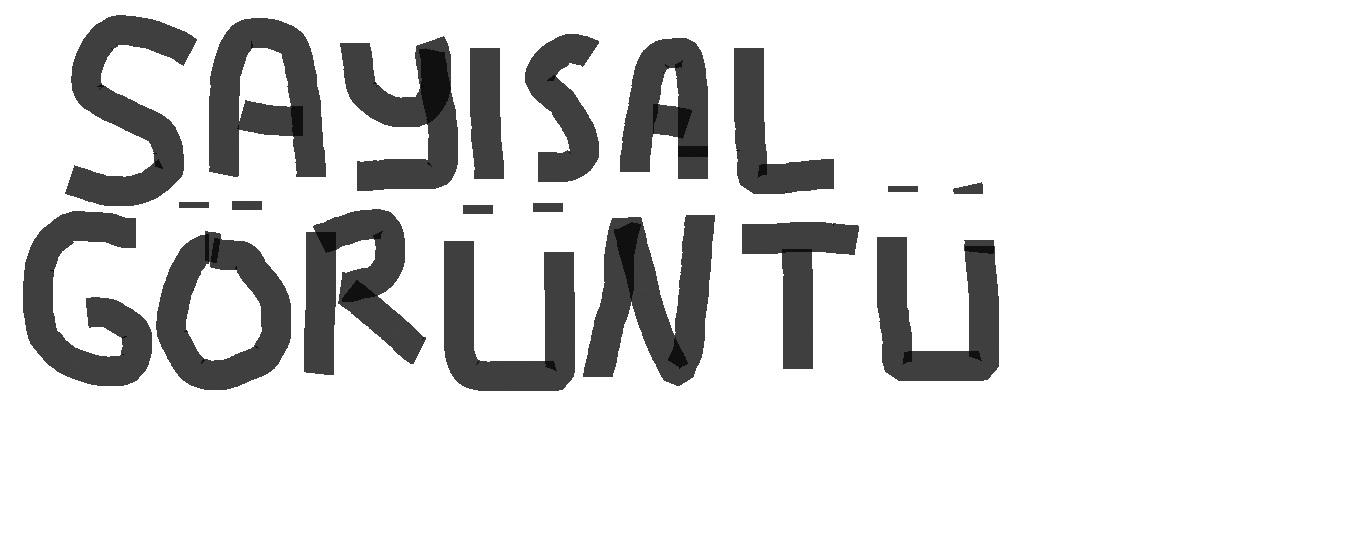 SAYISAL
GÖRÜNTÜ